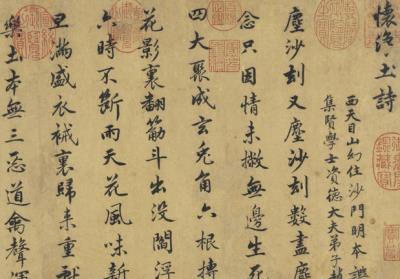 懷淨土詩
西天目山幻住沙門明本譔
集賢學士資德大夫弟子趙
塵沙刼又塵沙刼數盡塵
念只因情未撇無邊生死
四大聚成玄兎角六根摶
花影裏翻筋斗出沒閻浮
六時不斷雨天花風味新
旦滿盛衣裓裏歸來重獻
樂土本無三惡道禽聲渾